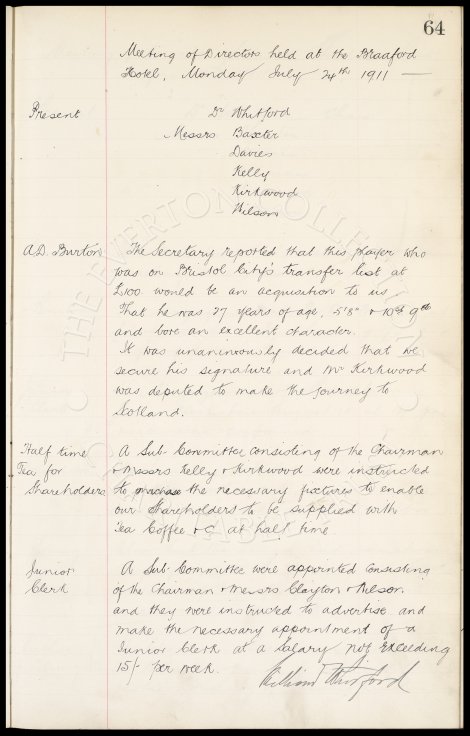 64
Meeting of Directors held at the Bradford
Hotel, Monday July 24th 1911 —
Present
Dr Whitford
Messrs Baxter
Davies
Kelly
Kirkwood
Wilson
A.D. Burton
The Secretary reported that this player who
was on Bristol City's transfer list at
£100 would be an acquisition to us
That he was 27 years of age, 5'8" & 10st 9lb
and bore an excellent character.
It was unanimously decided that we
secure his signature and Mr Kirkwood
was deputed to make the journey to
Scotland.
Half time
Tea for
Shareholders
A Sub Committee consisting of the Chairman
& Messrs Kelly & Kirkwood were instructed
to purchase the necessary fixtures to enable
our Shareholders to be supplied with
Tea Coffee &c at half time
Junior
Clerk
A Sub Committee were appointed consisting
of the Chairman & Messrs Clayton & Wilson
and they were instructed to advertise and
make the necessary appointment of a
Junior Clerk at a Salary not exceeding
15/- per week.
William Whitford
THE EVERTON COLLECTION